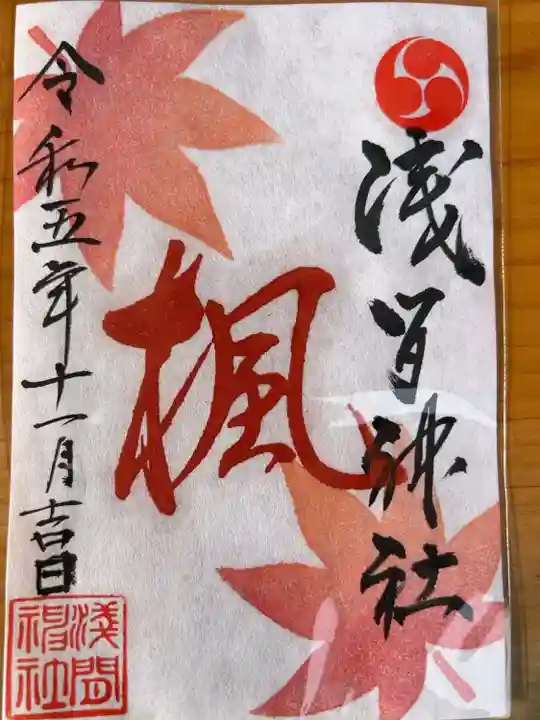 浅間神社
楓
令和五年十一月吉日
淺間
神社